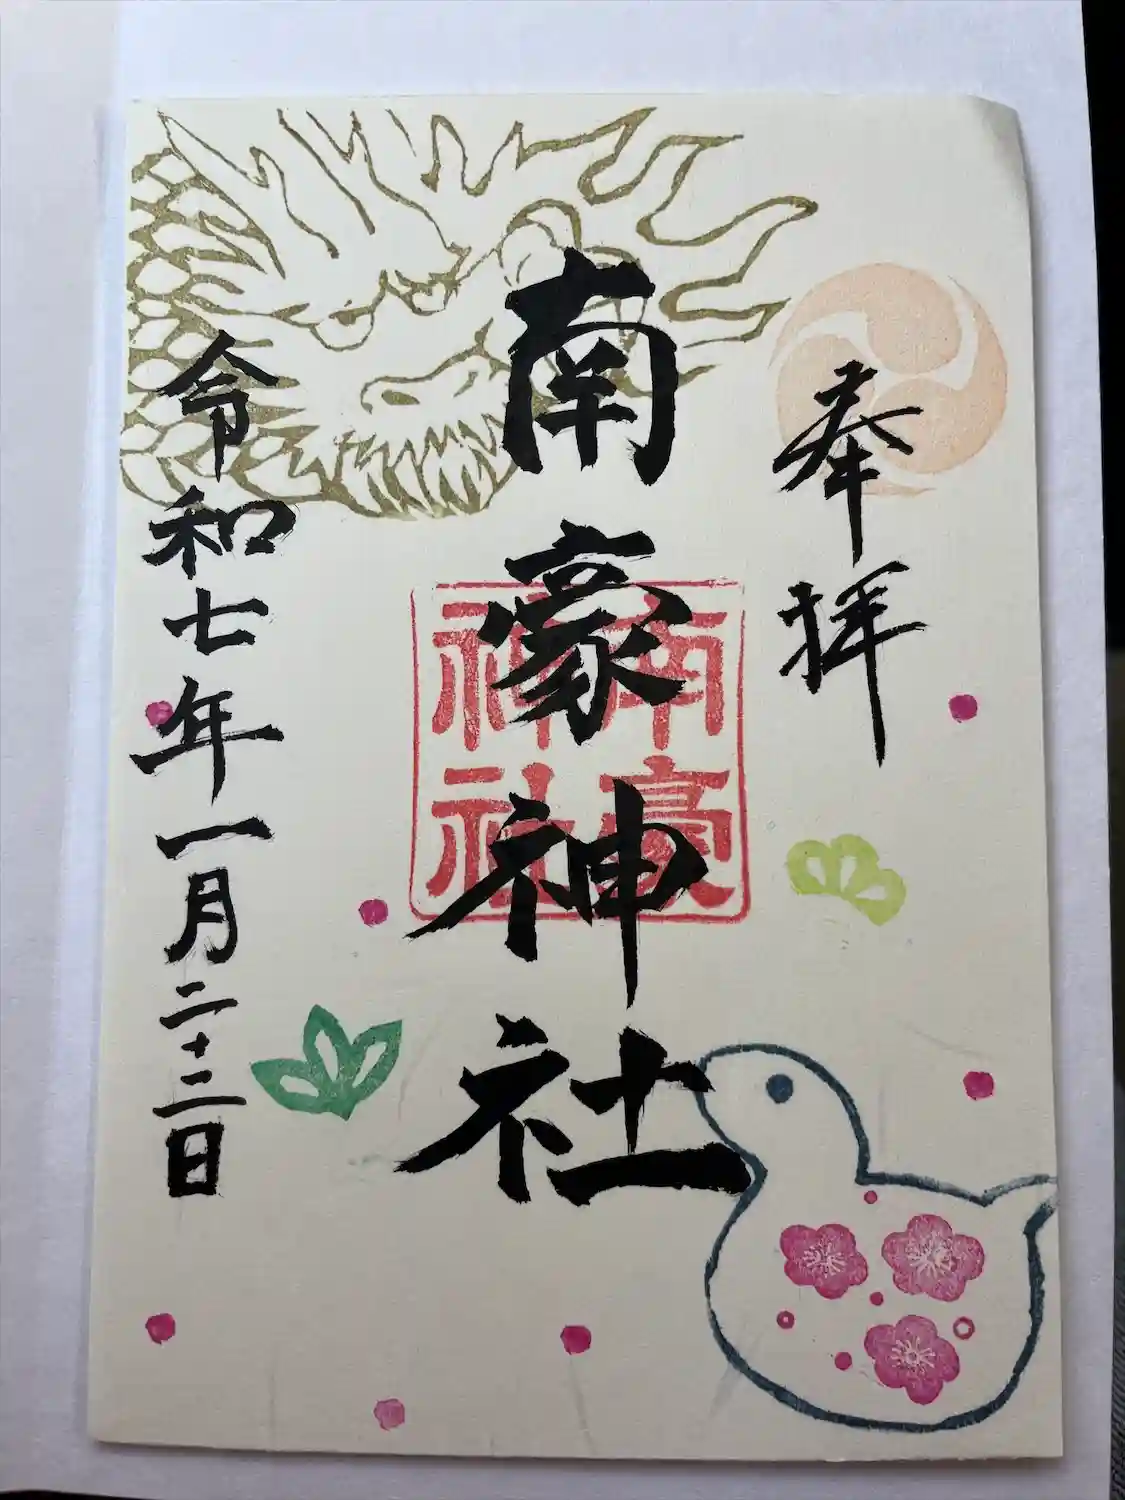 奉拝
南豪神社
南豪
神社
令和七年一月二十二日